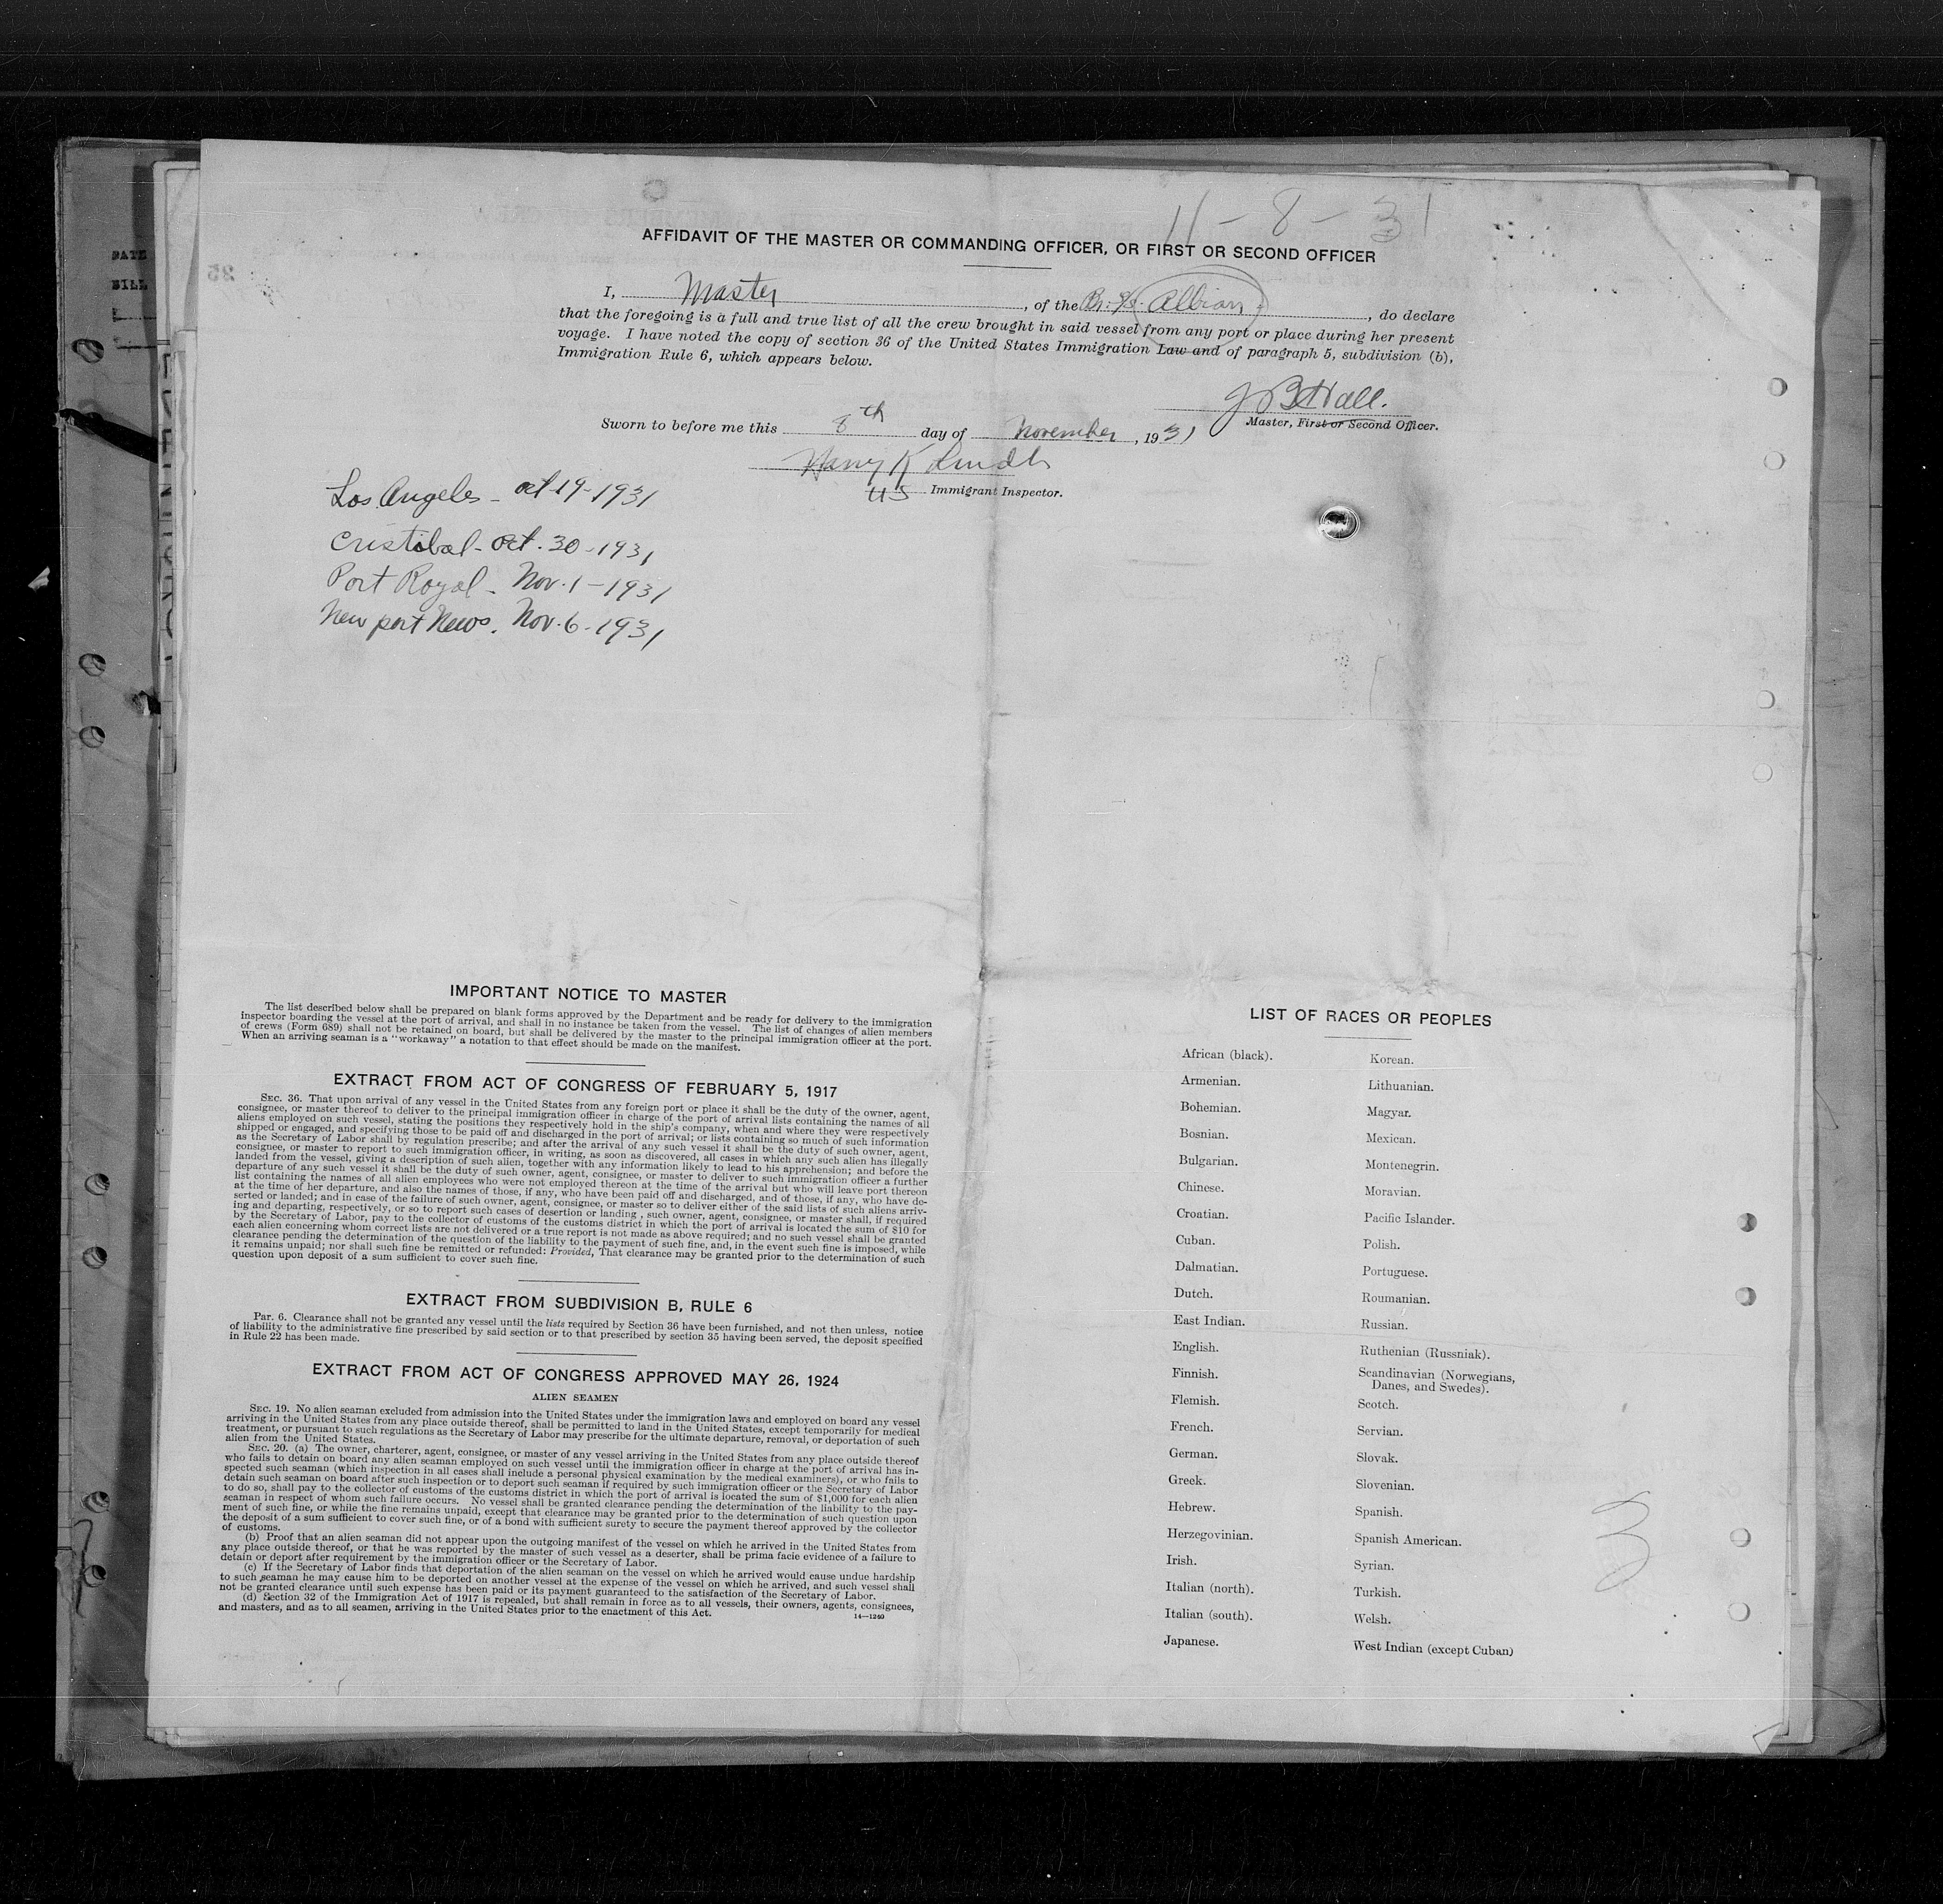 11-8-31
AFFIDAVIT OF THE MASTER OR COMMANDING OFFICER, OR FIRST OR SECOND OFFICER
I, Master, of the Br. S/S. Albian, do declare
that the foregoing is a full and true list of all the crew brought in said vessel from any port or place during her present
voyage. I have noted the copy of section 36 of the United States Immigration Law and of paragraph 5, subdivision (b),
Immigration Rule 6, which appears below.
J B Hall.
Master, First or Second Officer.
Sworn to before me this 8th day of November, 1931
Harry K
US Immigrant Inspector.
Los Angeles - Oct 19-1931
Cristibal - Oct. 30-1931
Port Royal - Nov. 1-1931
New port News. Nov. 6-1931
IMPORTANT NOTICE TO MASTER
The list described below shall be prepared on blank forms approved by the Department and be ready for delivery to the immigration
inspector boarding the vessel at the port of arrival, and shall in no instance be taken from the vessel. The list of changes of alien members
of crews (Form 689) shall not be retained on board, but shall be delivered by the master to the principal immigration officer at the port.
When an arriving seaman is a "workaway" a notation to that effect should be made on the manifest.
EXTRACT FROM ACT OF CONGRESS OF FEBRUARY 5, 1917
SEC. 36. That upon arrival of any vessel in the United States from any foreign port or place it shall be the duty of the owner, agent,
consignee, or master thereof to deliver to the principal immigration officer in charge of the port of arrival lists containing the names of all
aliens employed on such vessel, stating the positions they respectively hold in the ship's company, when and where they were respectively
shipped or engaged, and specifying those to be paid off and discharged in the port of arrival; or lists containing so much of such information
as the Secretary of Labor shall by regulation prescribe; and after the arrival of any such vessel it shall be the duty of such owner, agent,
consignee, or master to report to such immigration officer, in writing, as soon as discovered, all cases in which any such alien has illegally
landed from the vessel, giving a description of such alien, together with any information likely to lead to his apprehension; and before the
departure of any such vessel it shall be the duty of such owner, agent, consignee, or master to deliver to such immigration officer a further
list containing the names of all alien employees who were not employed thereon at the time of the arrival but who will leave port thereon
at the time of her departure, and also the names of those, if any, who have been paid off and discharged, and of those, if any, who have de-
serted or landed; and in case of the failure of such owner, agent, consignee, or master so to deliver either of the said lists of such aliens arriv-
ing and departing, respectively, or so to report such cases of desertion or landing, such owner, agent, consignee, or master shall, if required
by the Secretary of Labor, pay to the collector of customs of the customs district in which the port of arrival is located the sum of $10 for
each alien concerning whom correct lists are not delivered or a true report is not made as above required; and no such vessel shall be granted
clearance pending the determination of the question of the liability to the payment of such fine, and, in the event such fine is imposed, while
it remains unpaid; nor shall such fine be remitted or refunded: Provided, That clearance may be granted prior to the determination of such
question upon deposit of a sum sufficient to cover such fine.
EXTRACT FROM SUBDIVISION B, RULE 6
Par. 6. Clearance shall not be granted any vessel until the lists required by Section 36 have been furnished, and not then unless, notice
of liability to the administrative fine prescribed by said section or to that prescribed by section 35 having been served, the deposit specified
in Rule 22 has been made.
EXTRACT FROM ACT OF CONGRESS APPROVED MAY 26, 1924
ALIEN SEAMEN
SEC. 19. No alien seaman excluded from admission into the United States under the immigration laws and employed on board any vessel
arriving in the United States from any place outside thereof, shall be permitted to land in the United States, except temporarily for medical
treatment, or pursuant to such regulations as the Secretary of Labor may prescribe for the ultimate departure, removal, or deportation of such
alien from the United States.
SEC. 20. (a) The owner, charterer, agent, consignee, or master of any vessel arriving in the United States from any place outside thereof
who fails to detain on board any alien seaman employed on such vessel until the immigration officer in charge at the port of arrival has in-
spected such seaman (which inspection in all cases shall include a personal physical examination by the medical examiners), or who fails to
detain such seaman on board after such inspection or to deport such seaman if required by such immigration officer or the Secretary of Labor
to do so, shall pay to the collector of customs of the customs district in which the port of arrival is located the sum of $1,000 for each alien
seaman in respect of whom such failure occurs. No vessel shall be granted clearance pending the determination of the liability to the pay-
ment of such fine, or while the fine remains unpaid, except that clearance may be granted prior to the determination of such question upon
the deposit of a sum sufficient to cover such fine, or of a bond with sufficient surety to secure the payment thereof approved by the collector
of customs.
(b) Proof that an alien seaman did not appear upon the outgoing manifest of the vessel on which he arrived in the United States from
any place outside thereof, or that he was reported by the master of such vessel as a deserter, shall be prima facie evidence of a failure to
detain or deport after requirement by the immigration officer or the Secretary of Labor.
(c) If the Secretary of Labor finds that deportation of the alien seaman on the vessel on which he arrived would cause undue hardship
to such seaman he may cause him to be deported on another vessel at the expense of the vessel on which he arrived, and such vessel shall
not be granted clearance until such expense has been paid or its payment guaranteed to the satisfaction of the Secretary of Labor.
(d) Section 32 of the Immigration Act of 1917 is repealed, but shall remain in force as to all vessels, their owners, agents, consignees,
and masters, and as to all seamen, arriving in the United States prior to the enactment of this Act.
14—1240
LIST OF RACES OR PEOPLES
African (black). Korean.
Armenian. Lithuanian.
Bohemian. Magyar.
Bosnian. Mexican.
Bulgarian. Montenegrin.
Chinese. Moravian.
Croatian. Pacific Islander.
Cuban. Polish.
Dalmatian. Portuguese.
Dutch. Roumanian.
East Indian. Russian.
English. Ruthenian (Russniak).
Finnish. Scandinavian (Norwegians,
Danes, and Swedes).
Flemish. Scotch.
French. Servian.
German. Slovak.
Greek. Slovenian.
Hebrew. Spanish.
Herzegovinian. Spanish American.
Irish. Syrian.
Italian (north). Turkish.
Italian (south). Welsh.
Japanese. West Indian (except Cuban)
3